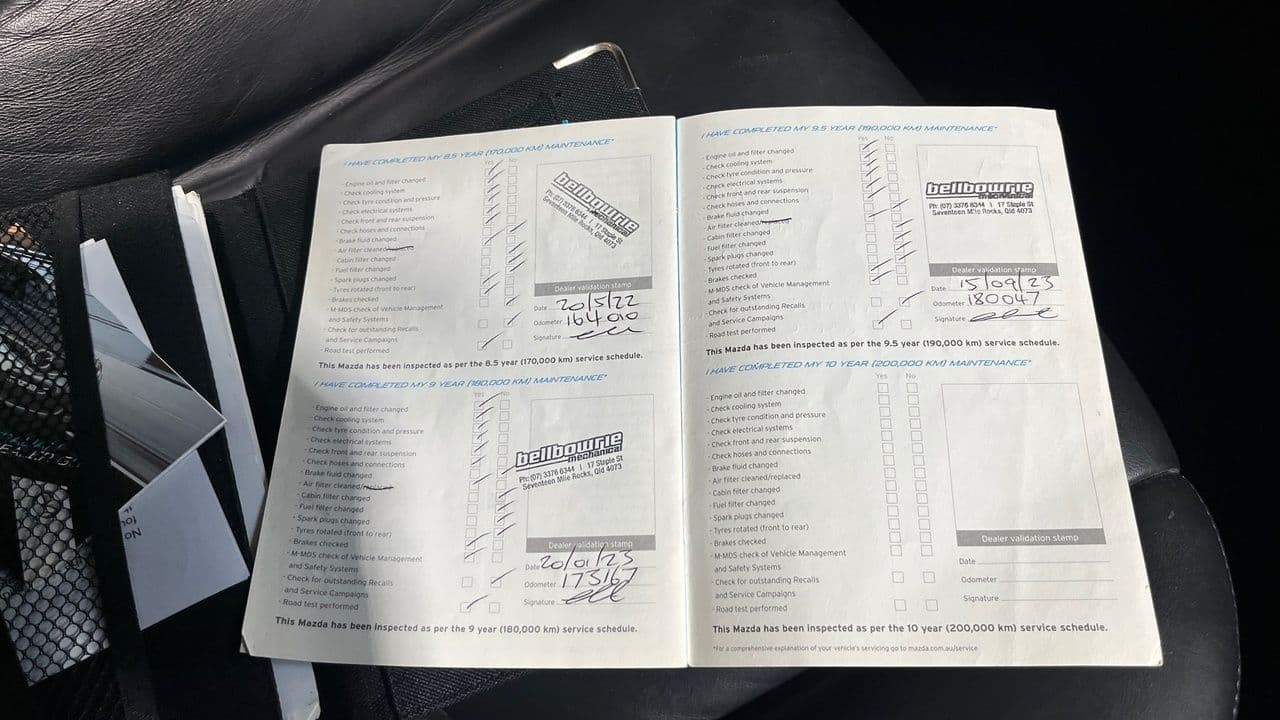 I HAVE COMPLETED MY 8.5 YEAR (170,000 KM) MAINTENANCE*
Yes No
- Engine oil and filter changed
- Check cooling system
- Check tyre condition and pressure
- Check electrical systems
- Check front and rear suspension
- Check hoses and connections
- Brake fluid changed
- Air filter cleaned/
- Cabin filter changed
- Fuel filter changed
- Spark plugs changed
- Tyres rotated (front to rear)
- Brakes checked
- M-MDS check of Vehicle Management
and Safety Systems
- Check for outstanding Recalls
and Service Campaigns
- Road test performed
bellbowrie
mechanical
Ph: (07) 3376 6344 | 17 Staple St
Seventeen Mile Rocks, Qld 4073
Dealer validation stamp
Date 20/5/22
Odometer 164 010
Signature
This Mazda has been inspected as per the 8.5 year (170,000 km) service schedule.
I HAVE COMPLETED MY 9 YEAR (180,000 KM) MAINTENANCE*
Yes No
- Engine oil and filter changed
- Check cooling system
- Check tyre condition and pressure
- Check electrical systems
- Check front and rear suspension
- Check hoses and connections
- Brake fluid changed
- Air filter cleaned/replaced
- Cabin filter changed
- Fuel filter changed
- Spark plugs changed
- Tyres rotated (front to rear)
- Brakes checked
- M-MDS check of Vehicle Management
and Safety Systems
- Check for outstanding Recalls
and Service Campaigns
- Road test performed
bellbowrie
mechanical
Ph: (07) 3376 6344 | 17 Staple St
Seventeen Mile Rocks, Qld 4073
Dealer validation stamp
Date 20/01/23
Odometer 175167
Signature
This Mazda has been inspected as per the 9 year (180,000 km) service schedule.
I HAVE COMPLETED MY 9.5 YEAR (190,000 KM) MAINTENANCE*
Yes No
- Engine oil and filter changed
- Check cooling system
- Check tyre condition and pressure
- Check electrical systems
- Check front and rear suspension
- Check hoses and connections
- Brake fluid changed
- Air filter cleaned/replaced
- Cabin filter changed
- Fuel filter changed
- Spark plugs changed
- Tyres rotated (front to rear)
- Brakes checked
- M-MDS check of Vehicle Management
and Safety Systems
- Check for outstanding Recalls
and Service Campaigns
- Road test performed
bellbowrie
mechanical
Ph: (07) 3376 6344 | 17 Staple St
Seventeen Mile Rocks, Qld 4073
Dealer validation stamp
Date 15/09/23
Odometer 180047
Signature
This Mazda has been inspected as per the 9.5 year (190,000 km) service schedule.
I HAVE COMPLETED MY 10 YEAR (200,000 KM) MAINTENANCE*
Yes No
- Engine oil and filter changed
- Check cooling system
- Check tyre condition and pressure
- Check electrical systems
- Check front and rear suspension
- Check hoses and connections
- Brake fluid changed
- Air filter cleaned/replaced
- Cabin filter changed
- Fuel filter changed
- Spark plugs changed
- Tyres rotated (front to rear)
- Brakes checked
- M-MDS check of Vehicle Management
and Safety Systems
- Check for outstanding Recalls
and Service Campaigns
- Road test performed
Dealer validation stamp
Date
Odometer
Signature
This Mazda has been inspected as per the 10 year (200,000 km) service schedule.
*For a comprehensive explanation of your vehicle's servicing go to mazda.com.au/service
No